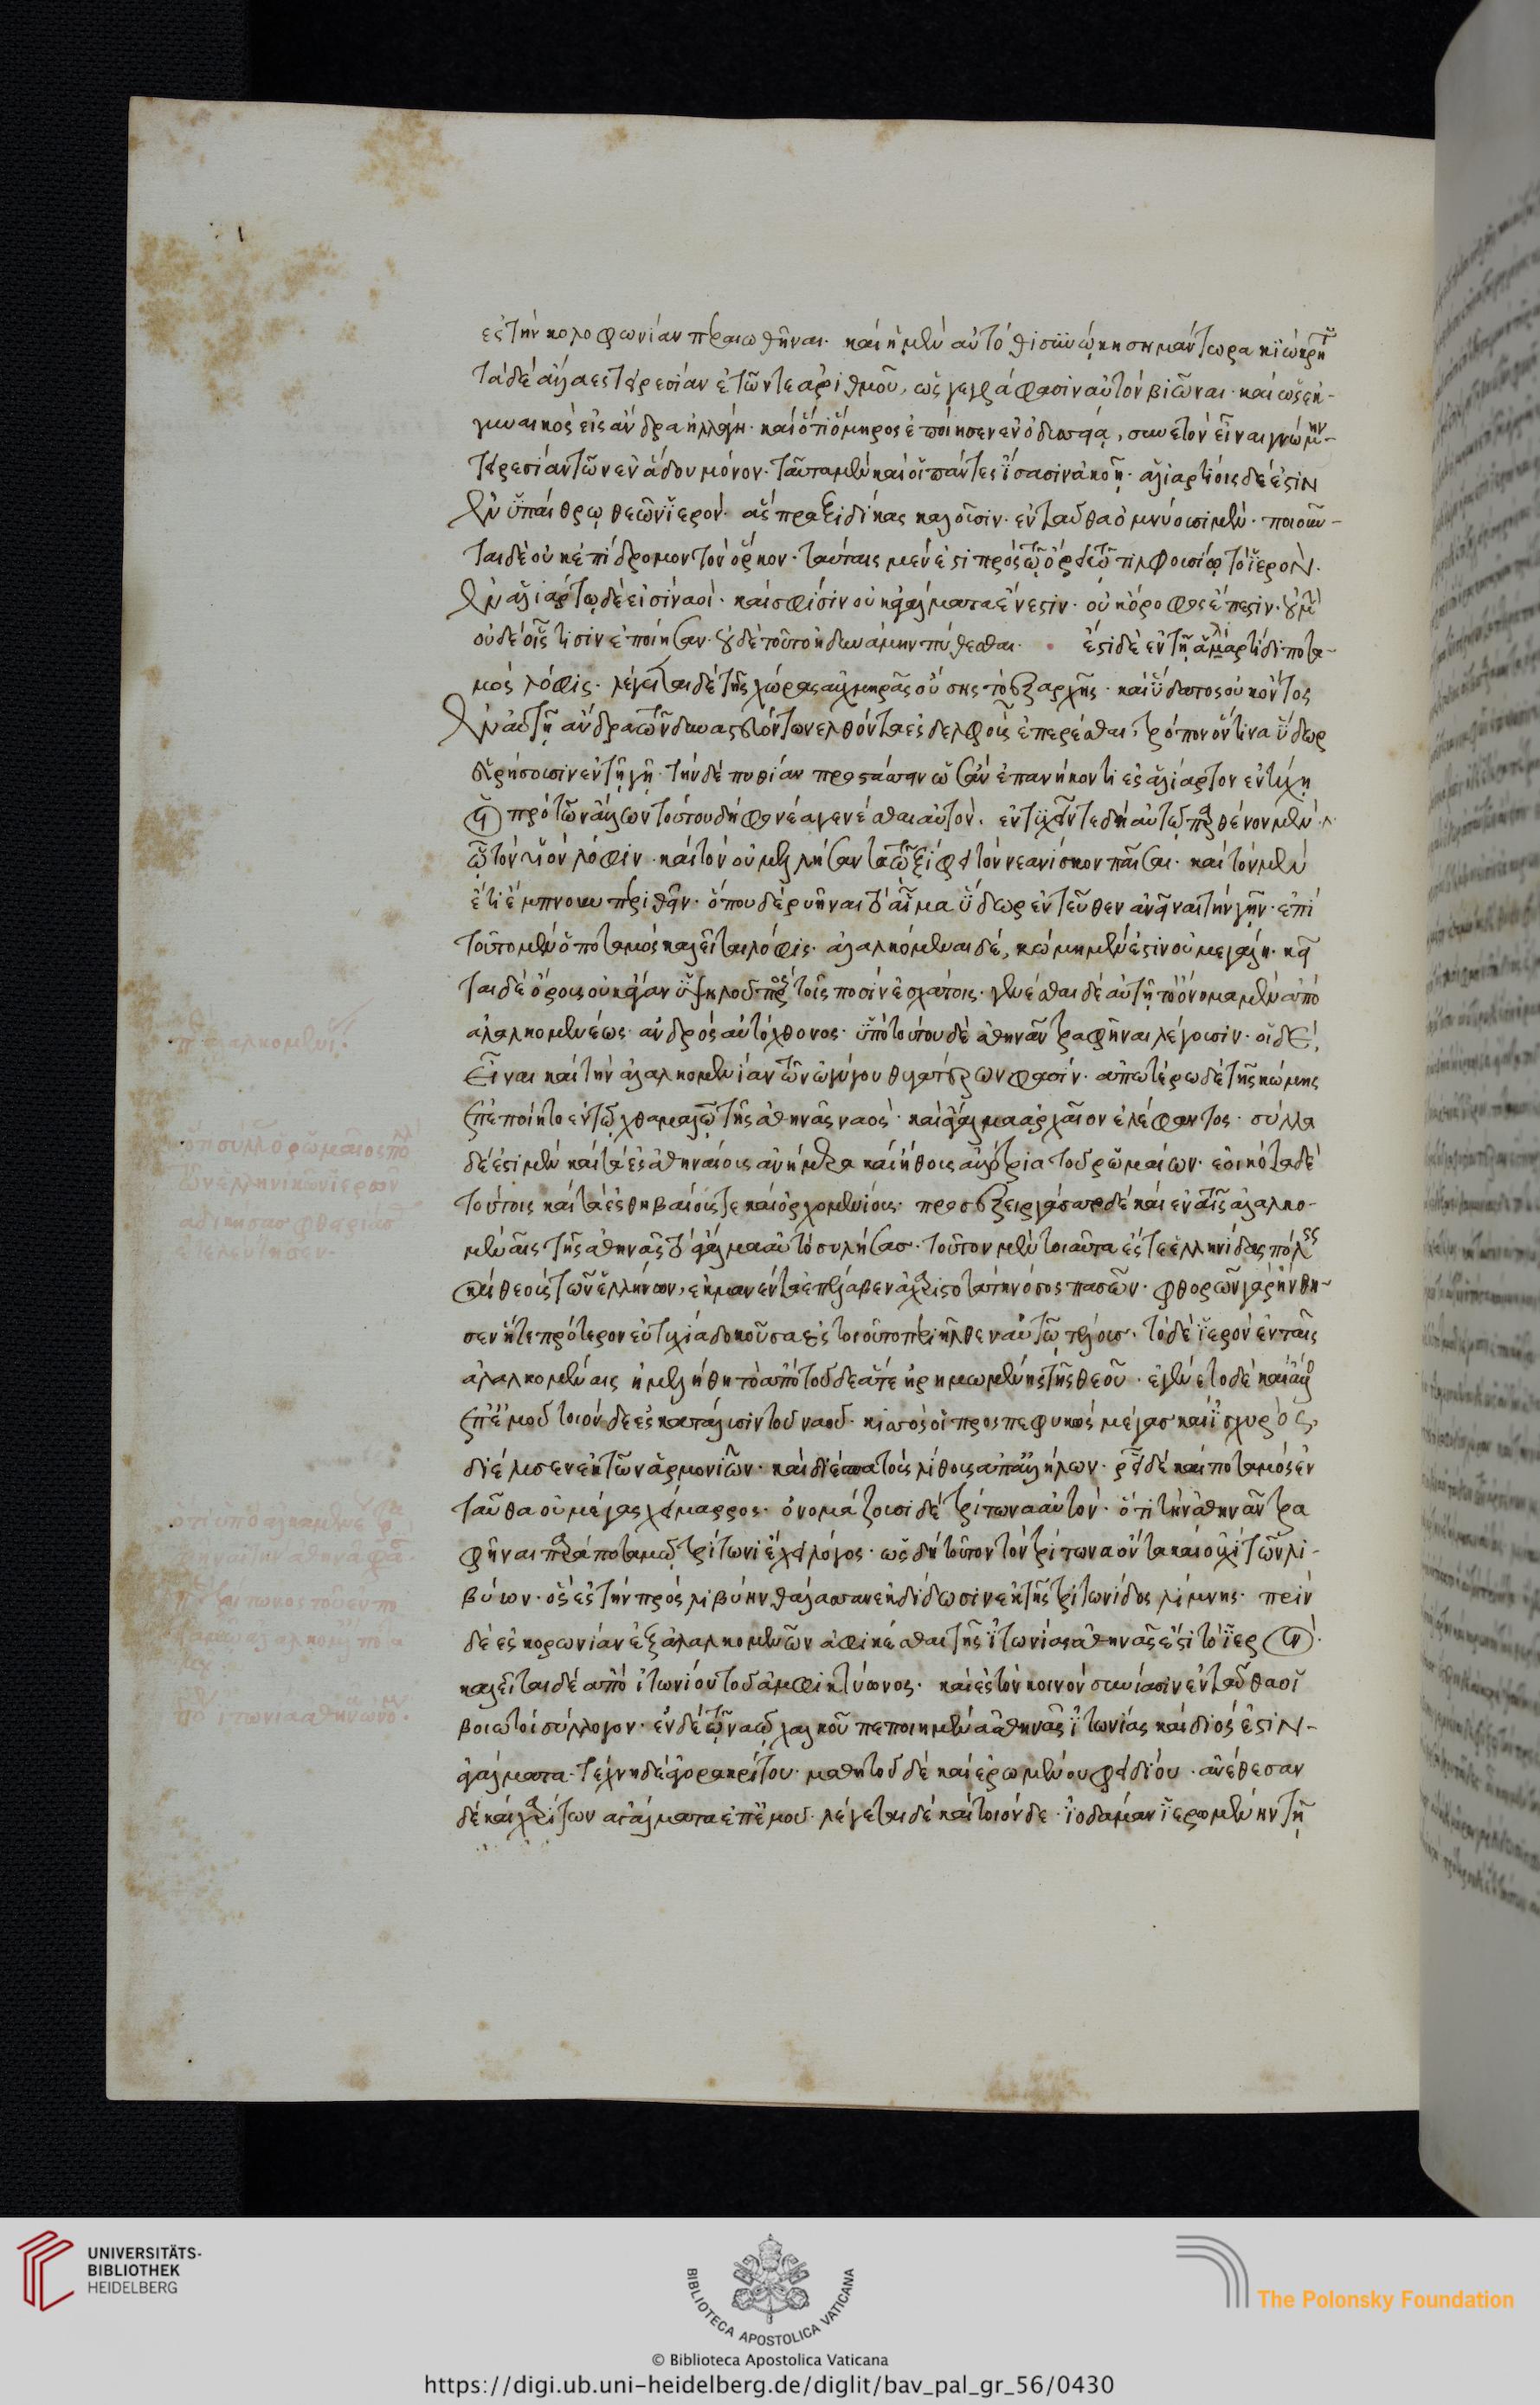 ες τὴν κολοφωνίαν περαιωθῆναι. καὶ ἡ μὲν αὐτόθι συνώκησε μαντὼ ρακίω κρητί
τὰ δὲ ἄλλα ἐς τειρεσίαν ἐτῶν τε ἀριθμοῦ, ὡς γεγράφασιν αὐτὸν βιῶναι. καὶ ὡς ἐκ
γυναικὸς εἰς ἄνδρα ἠλλάγη. καὶ ὅτι ὅμηρος ἐποίησεν ἐν ὀδυσσείᾳ, συνετὸν εἶναι γνώμην
τειρεσίαν τῶν ἐν ἅδου μόνον. ταῦτα μὲν καὶ οἱ πάντες ἴσασιν ἀκοῇ. ἁλιαρτίοις δέ ἐστιν
ἐν ὑπαίθρῳ θεῶν ἱερόν. ἃς πραξιδίκας καλοῦσιν. ἐνταῦθα ὀμνύουσι μὲν. ποιοῦν-
ται δὲ οὐκ ἐπίδρομον τὸν ὅρκον. ταύταις μέν ἐστι πρὸς τῷ ὄρει τῷ τιλφουσίῳ τὸ ἱερόν.
ἐν ἁλιάρτῳ δέ εἰσι ναοὶ. καὶ σφίσιν οὐκ ἀγάλματα ἔνεστιν. οὐκ ὄροφος ἔπεστιν. οὐ μὴν
οὐδὲ οἷς τισιν ἐποίησαν. οὐδὲ τοῦτο ἠδυνάμην πυθέσθαι. ἔστι δὲ ἐν τῇ ἁλιαρτίᾳ ποτα-
μὸς λόφις. λέγεται δὲ τῆς χώρας αὐχμηρᾶς οὔσης τὸ ἐξαρχῆς. καὶ ὕδατος οὐκ ὄντος
ἐν αὐτῇ ἄνδρα τῶν δυναστευόντων ἐλθόντα ἐς δελφοὺς ἐπερέσθαι, τρόπον ὅντινα ὕδωρ
εὑρήσουσιν ἐν τῇ γῇ. τὴν δὲ πυθίαν προστάσσειν ὃς ἂν ἐπανήκοντι ἐς ἁλίαρτον ἐντύχῃ
οἱ πρὸ τῶν ἄλλων τούτου δεῖν φονέα γενέσθαι αὐτόν. ἐντυχεῖν τε δὴ αὐτῷ παραγενομένῳ
τὸν υἱὸν λόφιν. καὶ τὸν οὐ μελλήσαντα τῷ ξίφει τὸν νεανίσκον παῖσαι. καὶ τὸν μὲν
ἔτι ἔμπνουν περιθεῖν. ὅπου δὲ ῥυῆναι τὸ αἷμα ὕδωρ ἐντεῦθεν ἀνεῖναι τὴν γῆν. ἐπὶ
τούτῳ μὲν ὁ ποταμὸς καλεῖται λόφις. ἀλαλκομεναὶ δέ, κώμη μέν ἐστιν οὐ μεγάλη. κεῖ
ται δὲ ὄρους οὐκ ἄγαν ὑψηλοῦ πρὸς τοῖς ποσὶν ἐσχάτοις. γενέσθαι δὲ αὐτῇ τὸ ὄνομα μὲν ἀπὸ
ἀλαλκομενέως. ἀνδρὸς αὐτόχθονος. ὑπὸ τούτου δὲ ἀθηνᾶν τραφῆναι λέγουσιν. οἱ δὲ,
εἶναι καὶ τὴν ἀλαλκομενίαν τῶν ὠγύγου θυγατέρων φασίν. ἀπωτέρω δὲ τῆς κώμης
ἐπεποίητο ἐν τῷ χθαμαλῷ τῆς ἀθηνᾶς ναὸς. καὶ ἄγαλμα ἀρχαῖον ἐλέφαντος. σύλλα
δέ ἐστι μὲν καὶ τὰ ἐς ἀθηναίους ἀνήμερα καὶ ἤθους ἀλλότρια τοῦ ῥωμαίων. ἐοικότα δὲ
τούτοις καὶ τὰ ἐς θηβαίους τε καὶ ὀρχομενίους. προσεξειργάσατο δὲ καὶ ἐν ταῖς ἀλαλκο-
μεναῖς τῆς ἀθηνᾶς τὸ ἄγαλμα αὐτὸ συλήσας. τοῦτον μὲν τοιαῦτα ἔς τε ἑλληνίδας πόλεις
καὶ θεοὺς τῶν ἑλλήνων, ἐκμανέντα ἐπέλαβεν ἀχαριστοτάτη νόσος πασῶν. φθειρῶν γὰρ ἤνθη-
σεν ἥ τε πρότερον εὐτυχία δοκοῦσα ἐς τοιοῦτο περιῆλθεν αὐτῷ τέλος. τὸ δὲ ἱερὸν ἐν ταῖς
ἀλαλκομεναῖς ἠμελήθη τὸ ἀπὸ τοῦδε ἅτε ἠρημωμένης τῆς θεοῦ. ἐγένετο δὲ καὶ ἄλλο
ἐπ' ἐμοῦ τοιόνδε ἐς κατάλυσιν τοῦ ναοῦ. κισσὸς οἱ προσπεφυκὼς μέγας καὶ ἰσχυρὸς,
διέλυσεν ἐκ τῶν ἁρμονιῶν. καὶ διέσπα τοὺς λίθους ἀπ' ἀλλήλων. ῥεῖ δὲ καὶ ποταμὸς ἐν
ταῦθα οὐ μέγας χείμαρρος. ὀνομάζουσι δὲ τρίτωνα αὐτόν. ὅτι τὴν ἀθηνᾶν τρα
φῆναι παρὰ ποταμῷ τρίτωνι ἔχει λόγος. ὡς δὴ τοῦτον τὸν τρίτωνα ὄντα καὶ οὐχὶ τῶν λι-
βύων. ὃς ἐς τὴν πρὸς λιβύην θάλασσαν ἐκδίδωσιν ἐκ τῆς τριτωνίδος λίμνης. πρὶν
δὲ ἐς κορωνίαν ἐξ ἀλαλκομενῶν ἀφικέσθαι τῆς ἰτωνίας ἀθηνᾶς ἐστι τὸ ἱερόν.
καλεῖται δὲ ἀπὸ ἰτωνίου τοῦ ἀμφικτύωνος. καὶ ἐς τὸν κοινὸν συνίασιν ἐνταῦθα οἱ
βοιωτοὶ σύλλογον. ἐν δὲ τῷ ναῷ χαλκοῦ πεποιημένα ἀθηνᾶς ἰτωνίας καὶ διός ἐστιν-
ἀγάλματα. τέχνη δὲ ἀγορακρίτου. μαθητοῦ δὲ καὶ ἐρωμένου φειδίου. ἀνέθεσαν
δὲ καὶ χαρίτων ἀγάλματα ἐπ' ἐμοῦ. λέγεται δὲ καὶ τοιόνδε. ἰοδάμαν ἱερωμένην τῇ
UNIVERSITÄTS-
BIBLIOTHEK
HEIDELBERG
BIBLIOTECA APOSTOLICA VATICANA
The Polonsky Foundation
© Biblioteca Apostolica Vaticana
https://digi.ub.uni-heidelberg.de/diglit/bav_pal_gr_56/0430